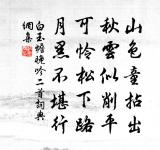 山色童枯出
秋雲似削平
可憐松下路
月黑不堪行
白玉蟾晚吟二首詞典
網集